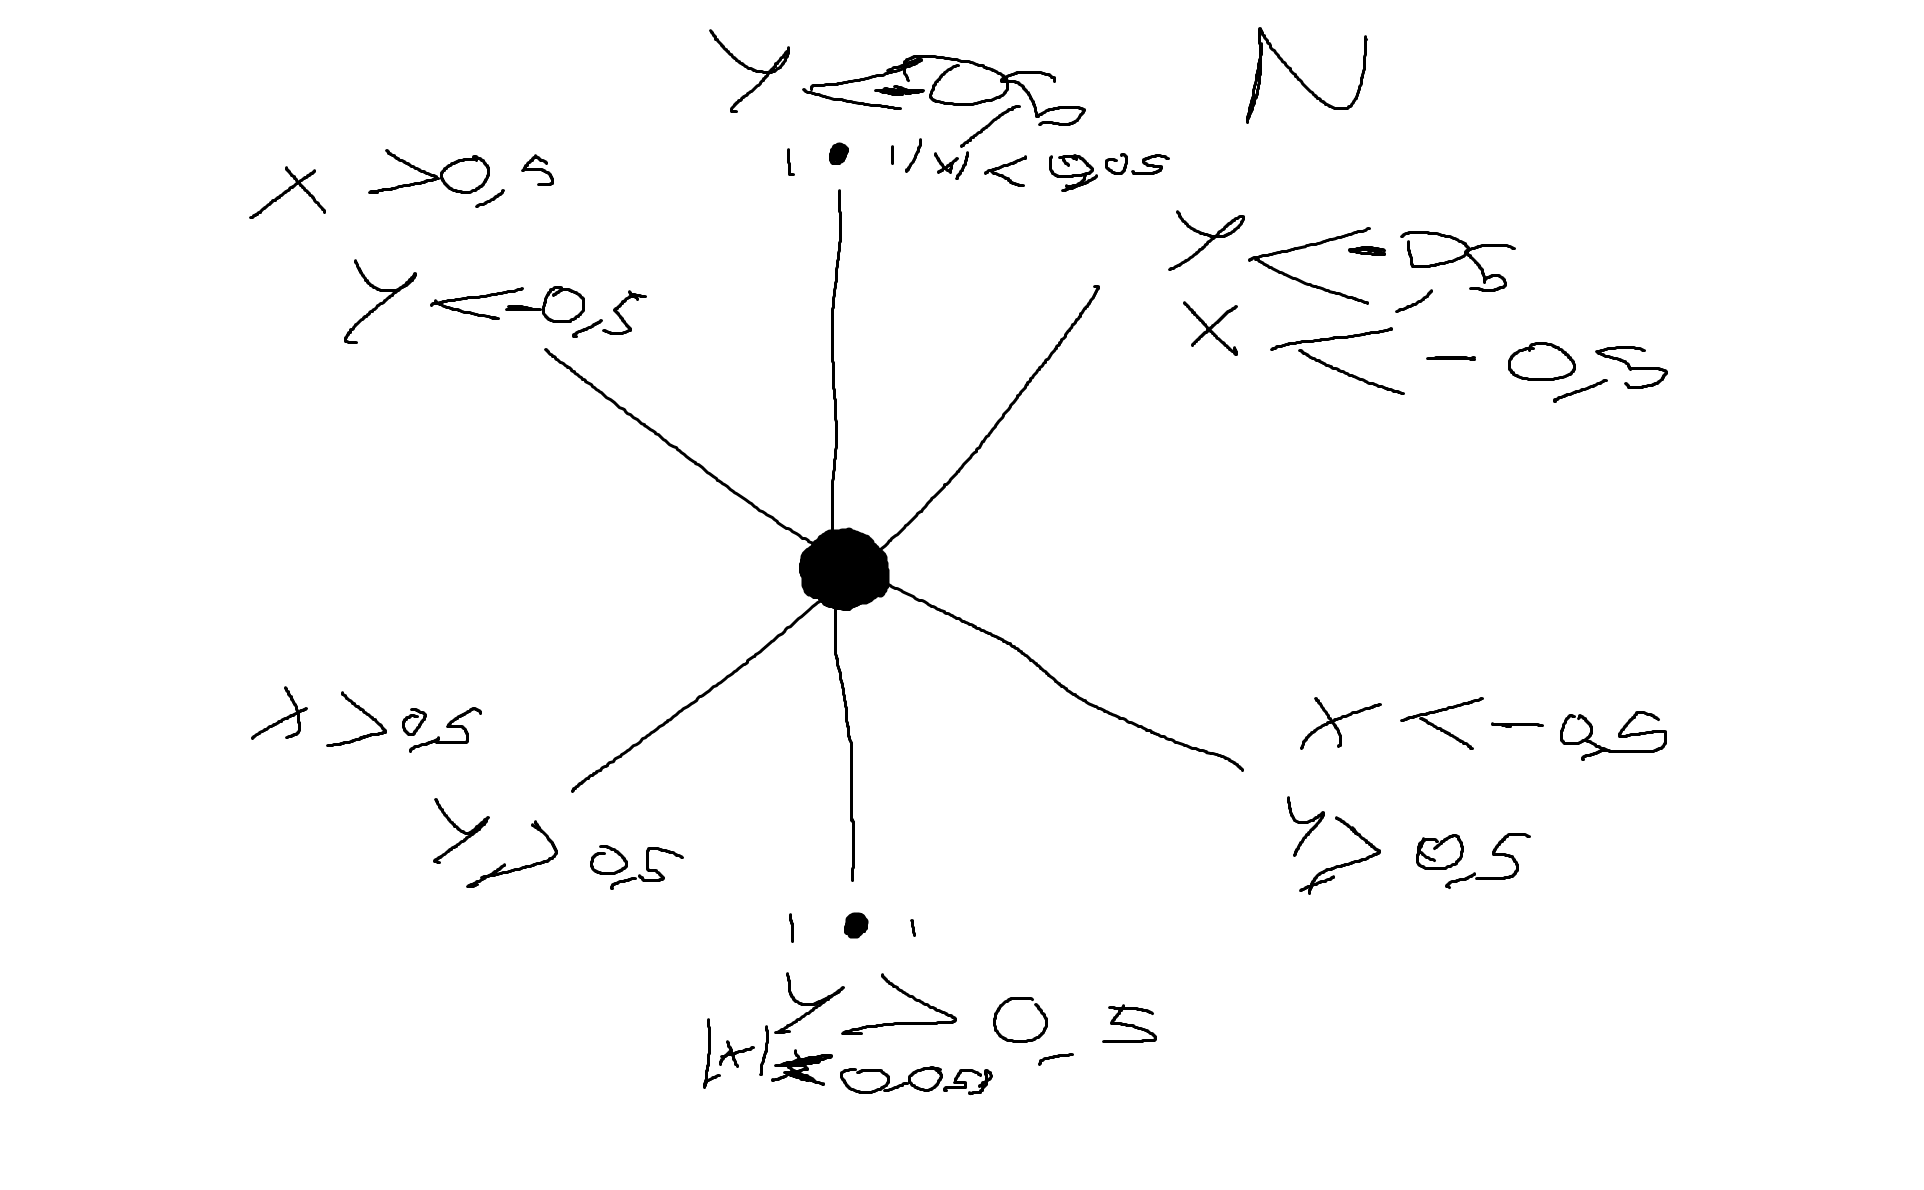 Y < -0,5 N
|x| < 0,05
X > 0,5
Y < -0,5
Y < -0,5
X < -0,5
X > 0,5
Y > 0,5
X < -0,5
Y > 0,5
Y > 0,5
|x| < 0,05